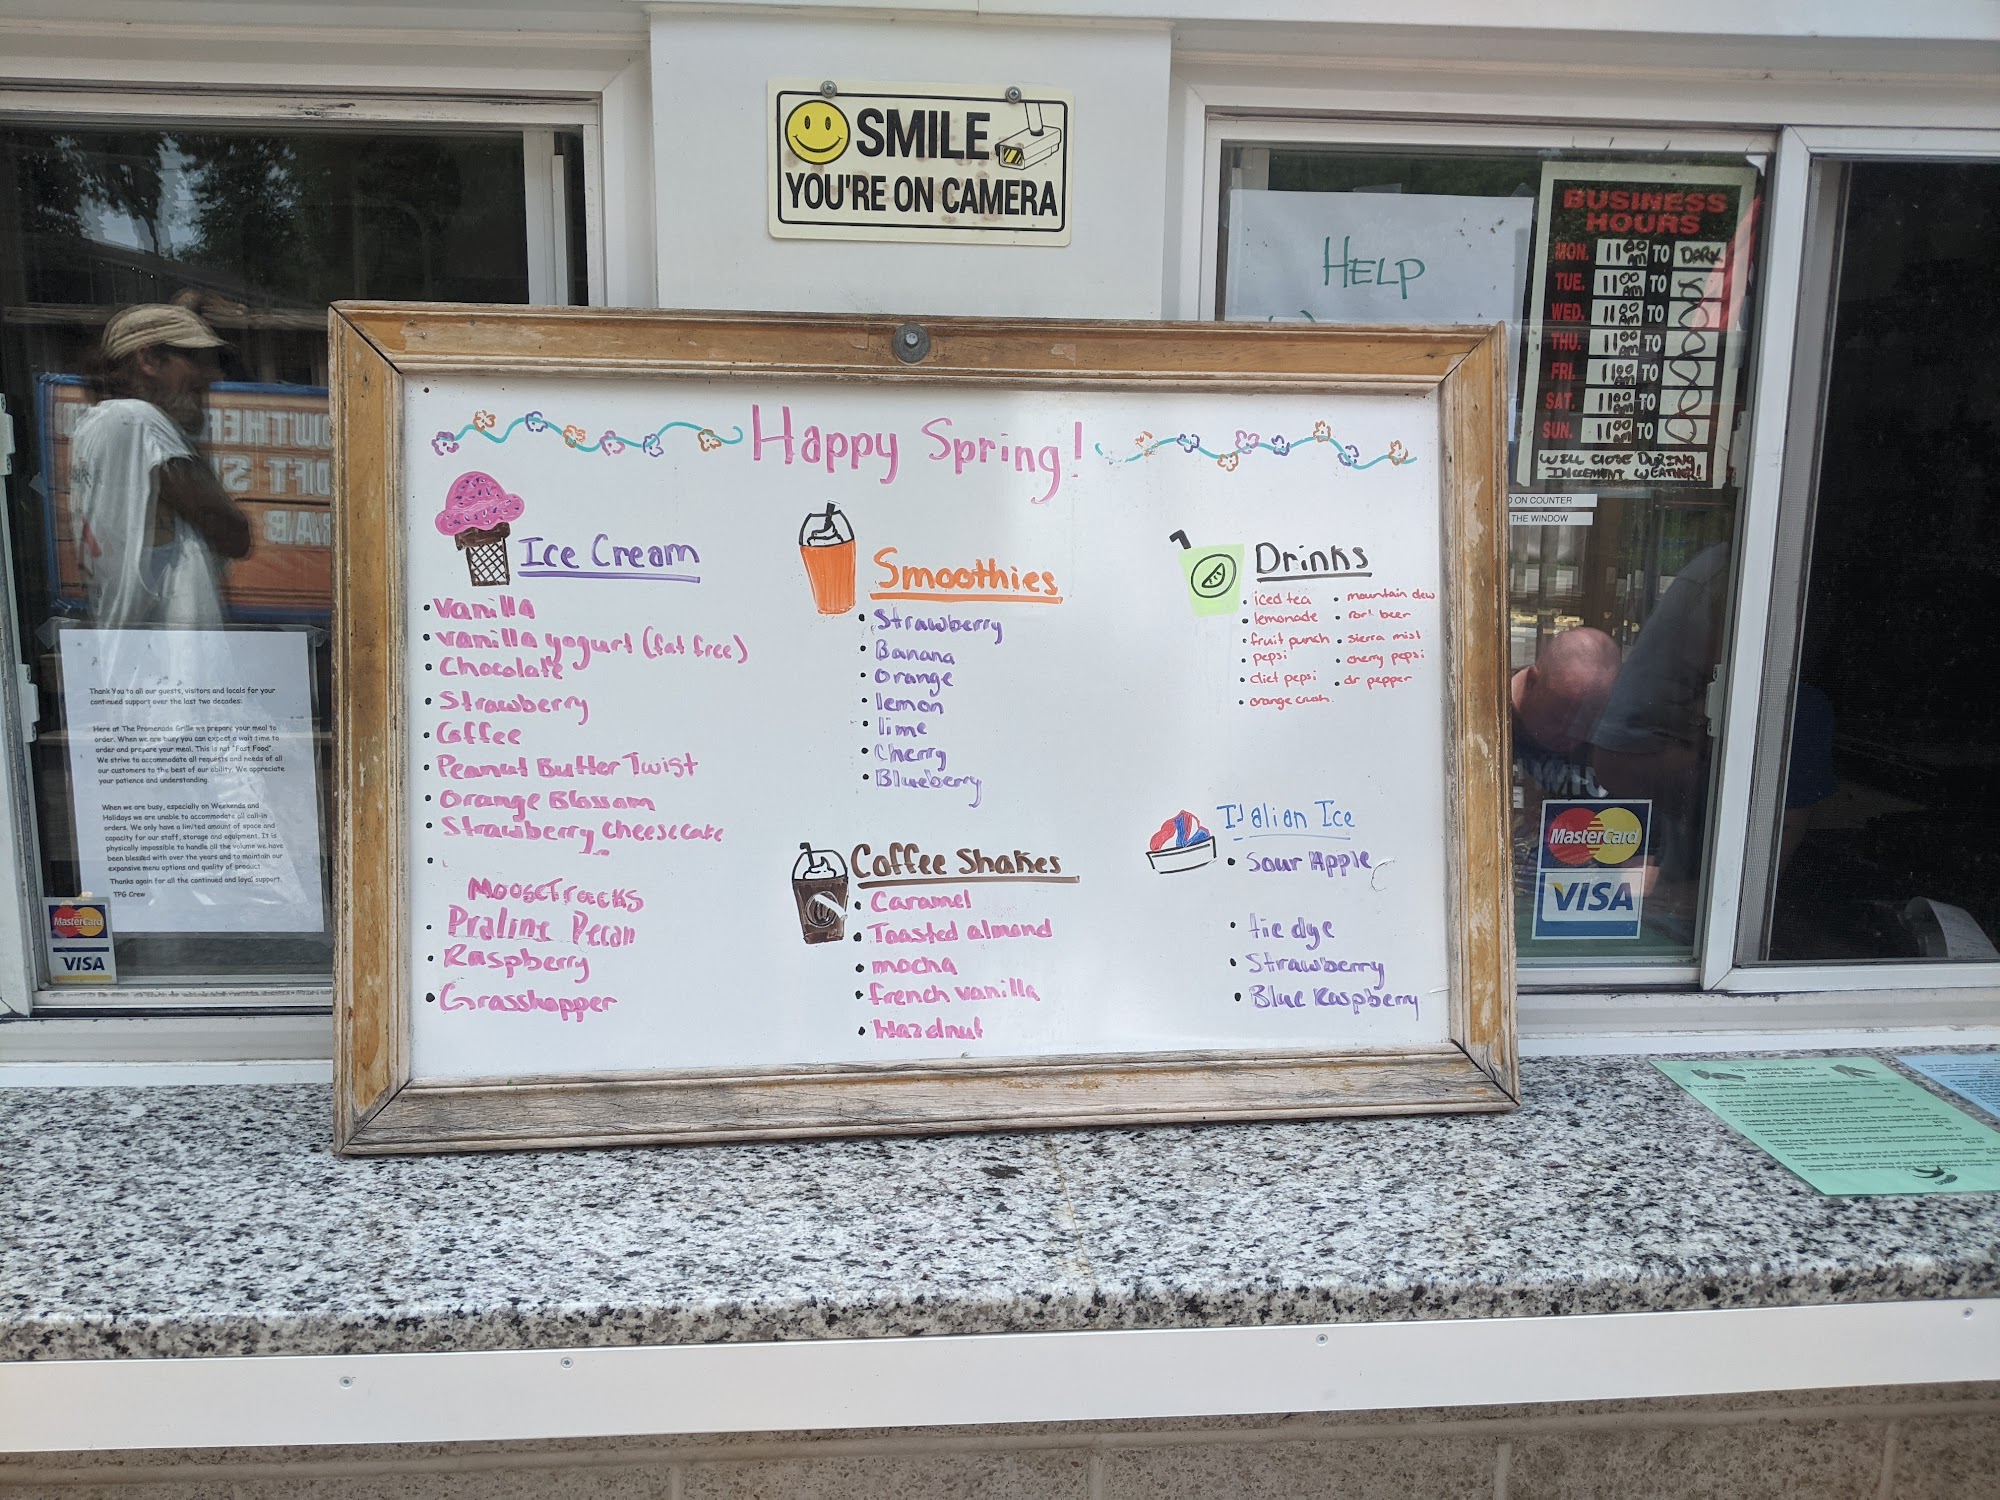 SMILE
YOU'RE ON CAMERA
HELP
BUSINESS
HOURS
MON. 11 00 AM TO DARK
TUE. 11 00 AM TO
WED. 11 00 AM TO
THU. 11 00 AM TO
FRI. 11 00 AM TO
SAT. 11 00 AM TO
SUN. 11 00 AM TO
WILL CLOSE DURING
INCLEMENT WEATHER!
ON COUNTER
THE WINDOW
MasterCard
VISA
Happy Spring!
Ice Cream
• Vanilla
• vanilla yogurt (fat free)
• Chocolate
• Strawberry
• Coffee
• Peanut Butter Twist
• Orange Blossom
• Strawberry Cheesecake
•
MooseTracks
• Praline Pecan
• Raspberry
• Grasshopper
Smoothies
• Strawberry
• Banana
• Orange
• lemon
• lime
• Cherry
• Blueberry
Coffee Shakes
• Caramel
• Toasted almond
• mocha
• french vanilla
• Hazelnut
Drinks
• iced tea
• lemonade
• fruit punch
• pepsi
• diet pepsi
• orange crush
• mountain dew
• root beer
• sierra mist
• cherry pepsi
• dr pepper
Italian Ice
• Sour Apple
• tie dye
• Strawberry
• Blue Raspberry
Thank You to all our guests, visitors and locals for your
continued support over the last two decades:
Here at The Promenade Grille we prepare your meal to
order. When we are busy you can expect a wait time to
order and prepare your meal. This is not "Fast Food".
We strive to accommodate all requests and needs of all
our customers to the best of our ability. We appreciate
your patience and understanding.
When we are busy, especially on Weekends and
Holidays we are unable to accommodate all call-in
orders. We only have a limited amount of space and
capacity for our staff, storage and equipment. It is
physically impossible to handle all the volume we have
been blessed with over the years and to maintain our
expansive menu options and quality of product.
Thanks again for all the continued and loyal support.
TPG Crew
MasterCard
VISA